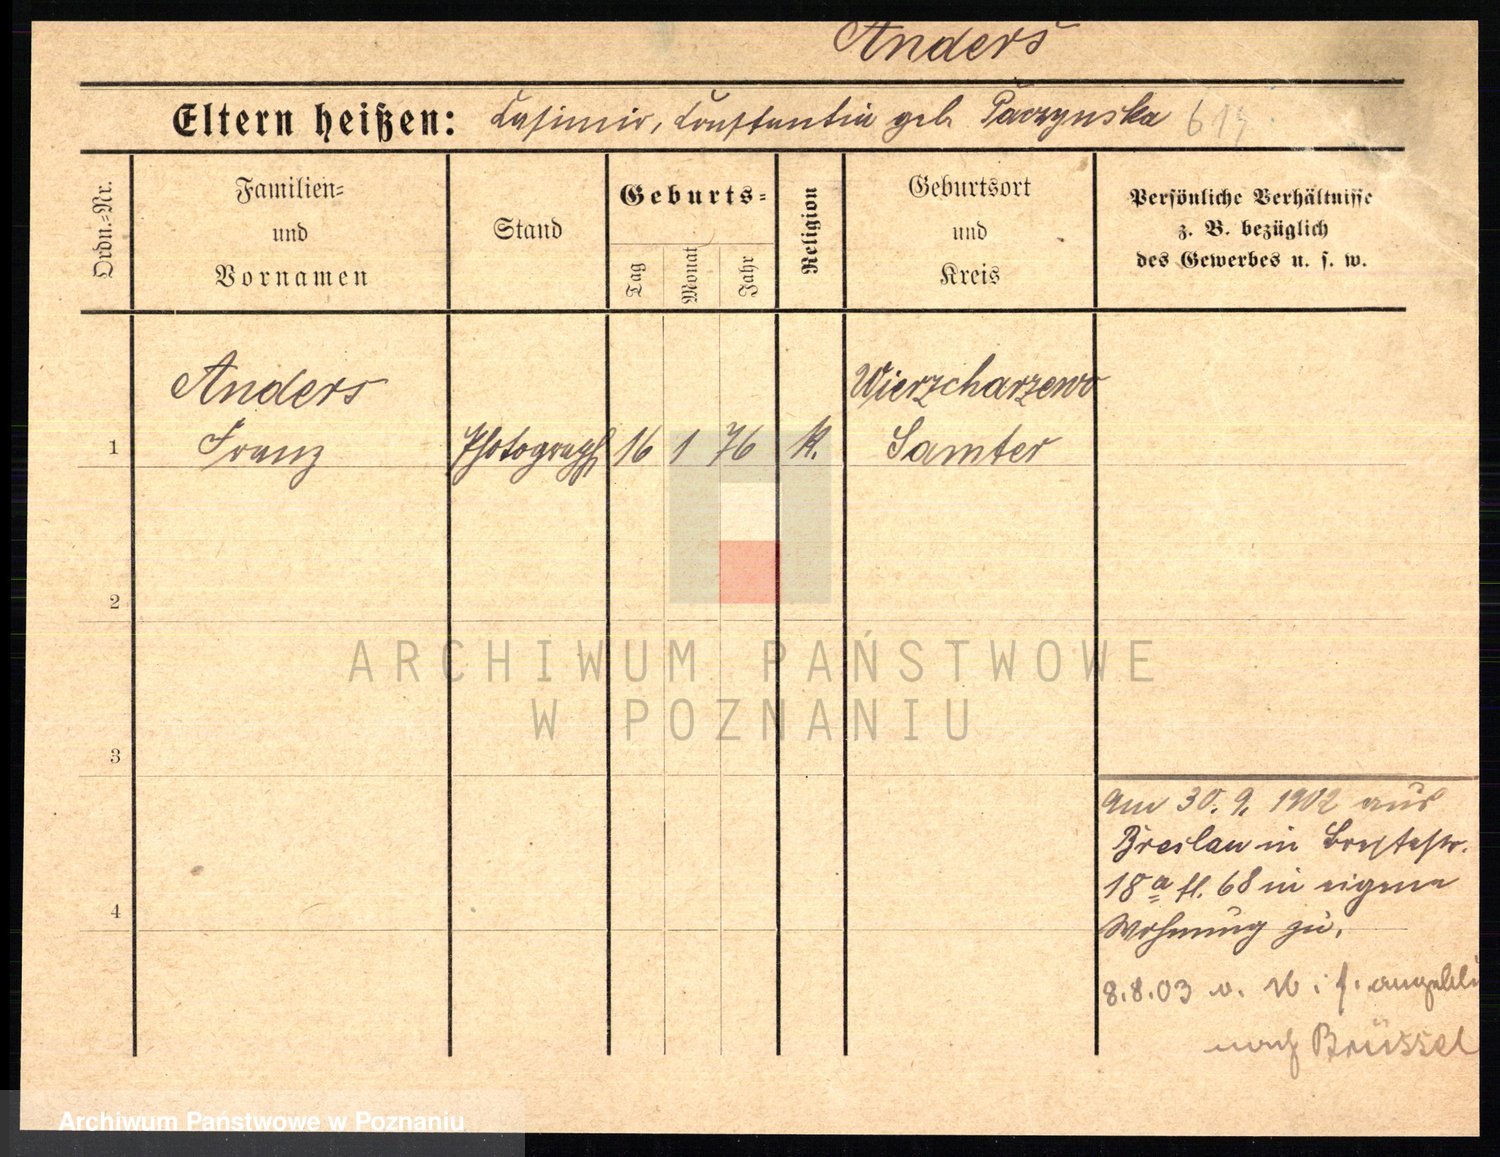 Anders
Eltern heißen: Casimir, Constantia geb. Paczynska 619
Ordn.-Nr.
Familien-
und
Vornamen
Stand
Geburts-
Tag
Monat
Jahr
Religion
Geburtsort
und
Kreis
Persönliche Verhältnisse
z. B. bezüglich
des Gewerbes u. s. w.
Anders
Wierzcharzewo
1 Franz Photograph 16 1 76 k. Samter
2
3
4
am 30. 9. 1902 aus
Breslau in
18a fl. 68 in eigene
Wohnung zu.
8.8.03 v. n. f. angeblich
nach Brüssel
ARCHIWUM PAŃSTWOWE
W POZNANIU
Archiwum Państwowe w Poznaniu